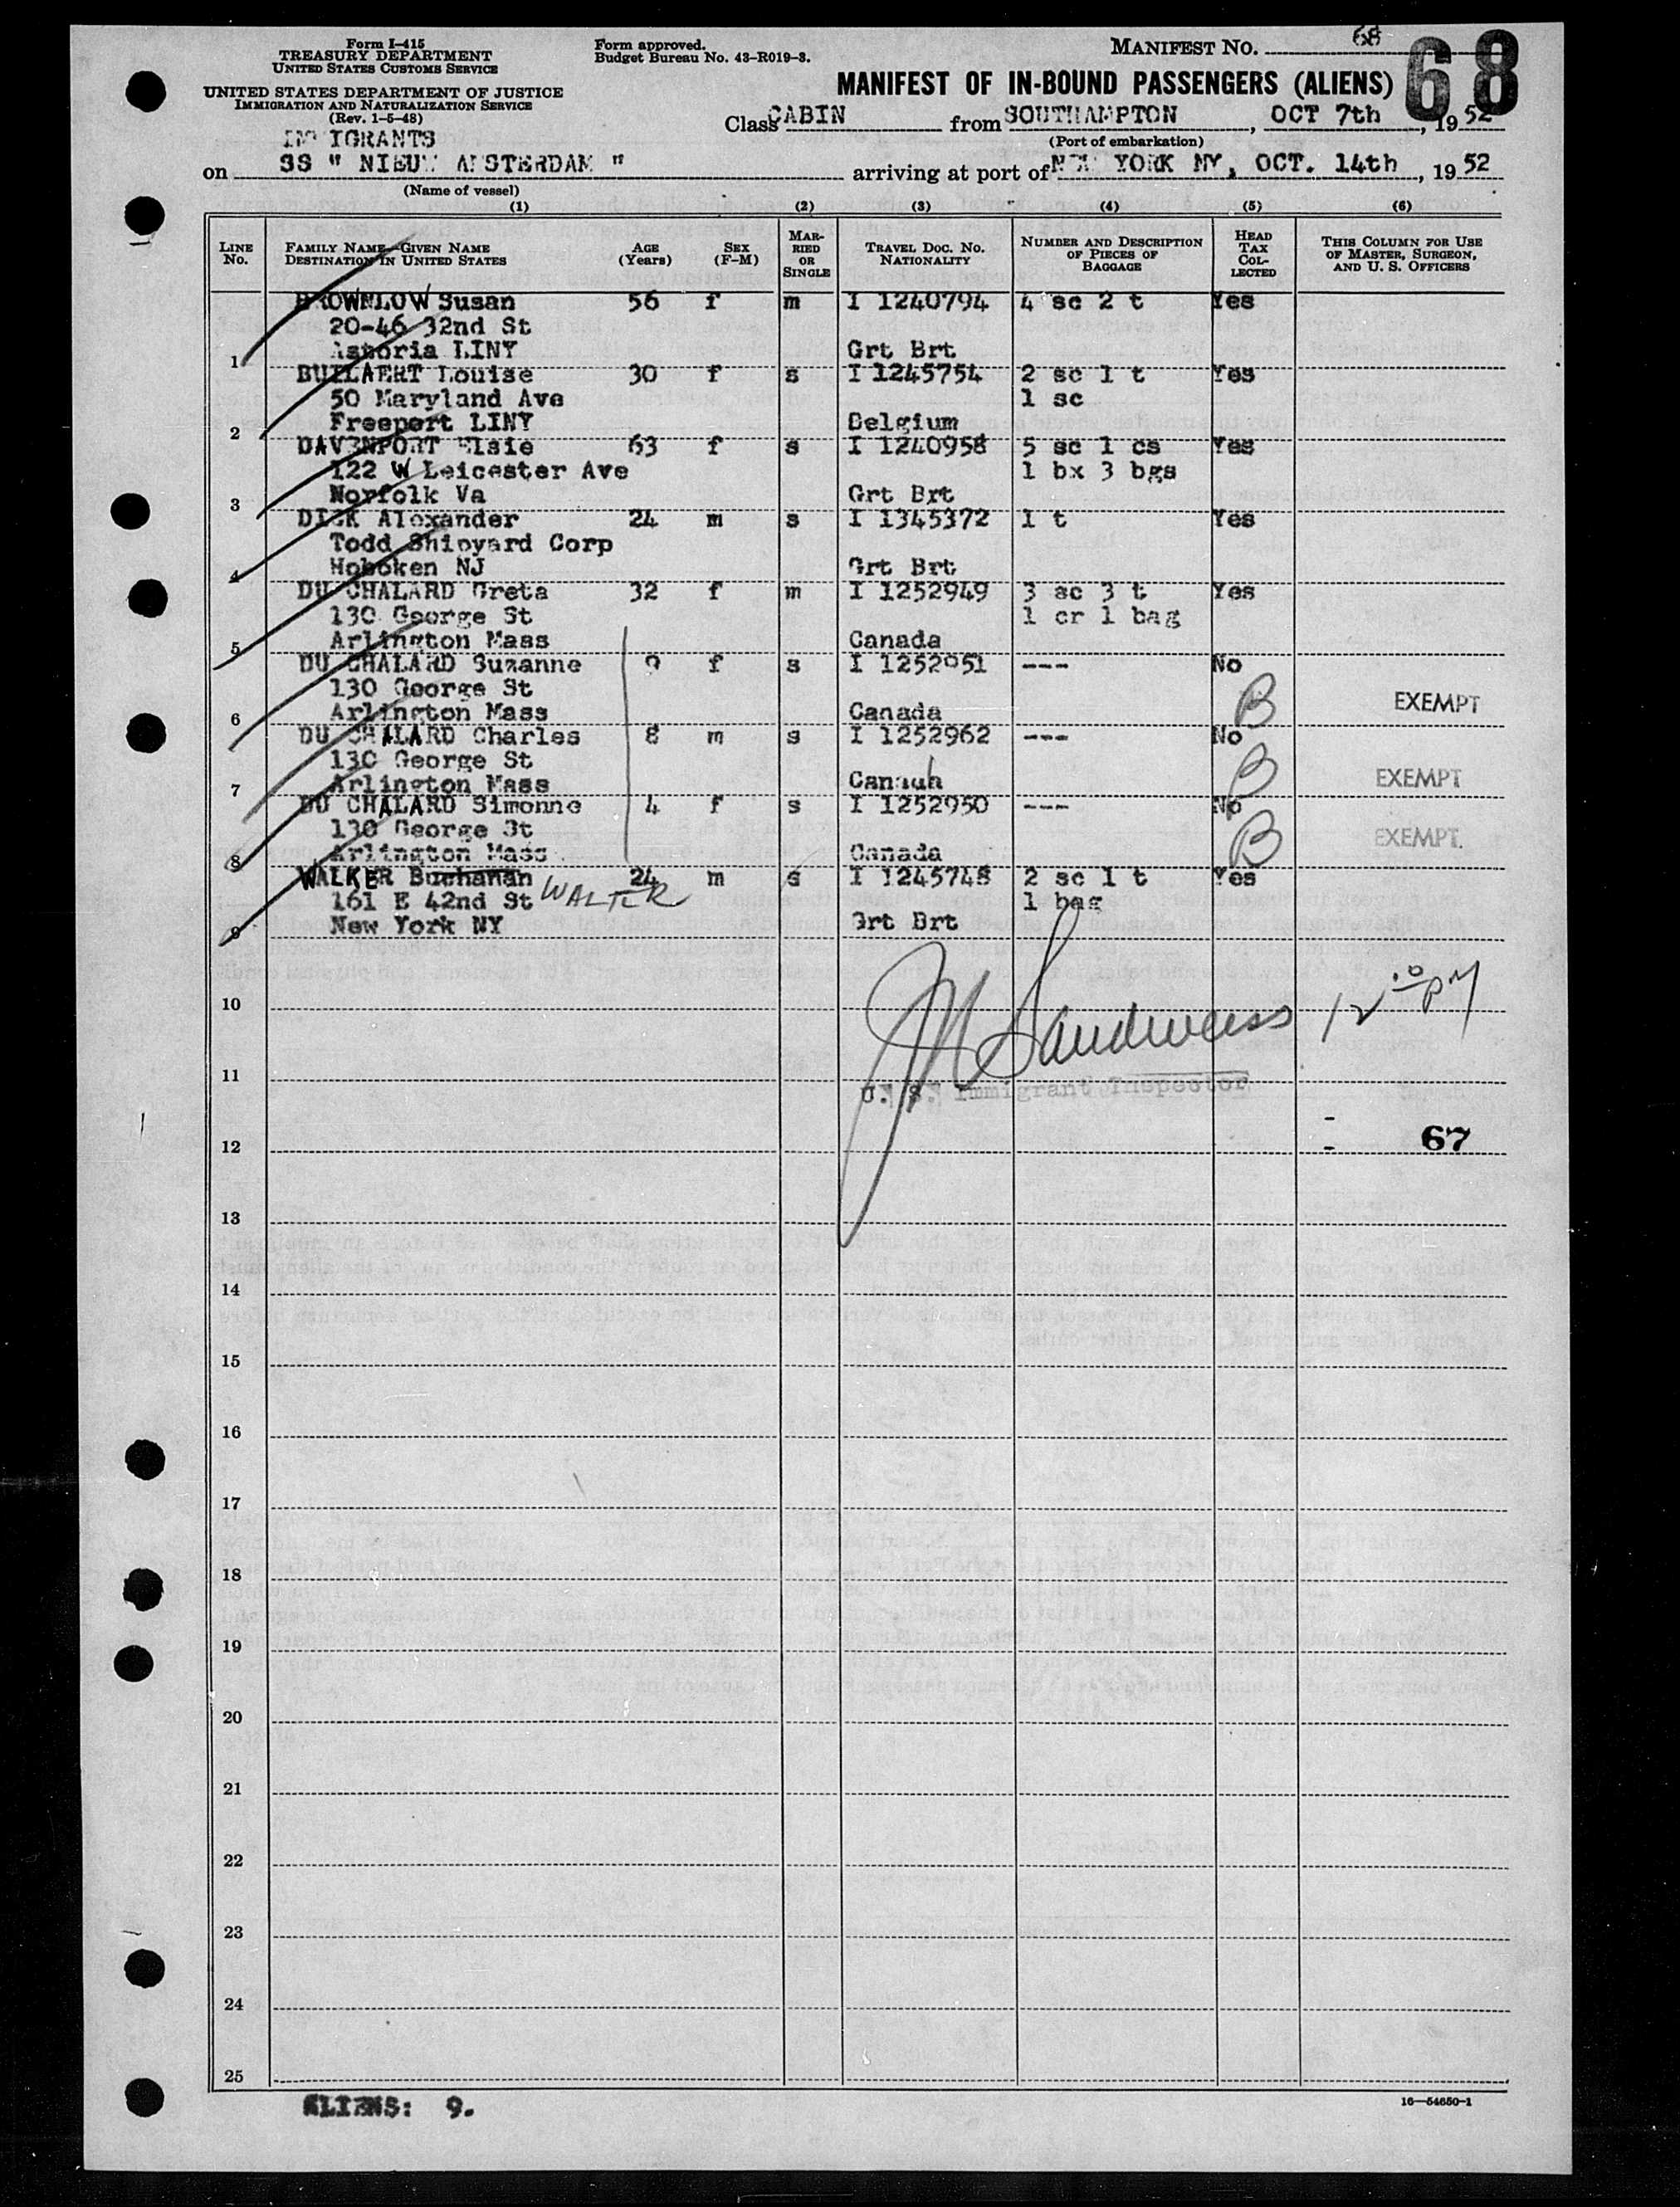 Form I-415
TREASURY DEPARTMENT
UNITED STATES CUSTOMS SERVICE
UNITED STATES DEPARTMENT OF JUSTICE
IMMIGRATION AND NATURALIZATION SERVICE
(Rev. 1-5-48)
Form approved.
Budget Bureau No. 43-R019-3.
MANIFEST NO. 68
68
MANIFEST OF IN-BOUND PASSENGERS (ALIENS)
Class CABIN from SOUTHAMPTON, OCT 7th, 1952
(Port of embarkation)
IMMIGRANTS
on SS " NIEUW AMSTERDAM " arriving at port of NEW YORK NY, OCT. 14th, 1952
(Name of vessel)
(1) (2) (3) (4) (5) (6)
LINE No. FAMILY NAME—GIVEN NAME DESTINATION IN UNITED STATES AGE (Years) SEX (F-M) MARRIED OR SINGLE TRAVEL DOC. NO. NATIONALITY NUMBER AND DESCRIPTION OF PIECES OF BAGGAGE HEAD TAX COLLECTED THIS COLUMN FOR USE OF MASTER, SURGEON, AND U. S. OFFICERS
BROWNLOW Susan 56 f m I 1240794 4 sc 2 t Yes
20-46 32nd St
1 Astoria LINY Grt Brt
BUILAERT Louise 30 f s I 1245754 2 sc 1 t Yes
50 Maryland Ave 1 sc
2 Freeport LINY Belgium
DAVENPORT Elsie 63 f s I 1240958 5 sc 1 cs Yes
122 W Leicester Ave 1 bx 3 bgs
3 Norfolk Va Grt Brt
DICK Alexander 24 m s I 1345372 1 t Yes
Todd Shipyard Corp
4 Hoboken NJ Grt Brt
DU CHALARD Greta 32 f m I 1252949 3 sc 3 t Yes
130 George St 1 cr 1 bag
5 Arlington Mass Canada
DU CHALARD Suzanne 9 f s I 1252951 --- No
130 George St B EXEMPT
6 Arlington Mass Canada
DU CHALARD Charles 8 m s I 1252962 --- No
130 George St B EXEMPT
7 Arlington Mass Canada
DU CHALARD Simonne 4 f s I 1252950 --- No
130 George St B EXEMPT.
8 Arlington Mass Canada
WALKER Buchanan 24 m s I 1245748 2 sc 1 t Yes
161 E 42nd St WALTER 1 bag
9 New York NY Grt Brt
10
Sandweiss 12 00 PM
11
U. S. Immigrant Inspector
12 67
13
14
15
16
17
18
19
20
21
22
23
24
25
ALIENS: 9.
16—54650-1